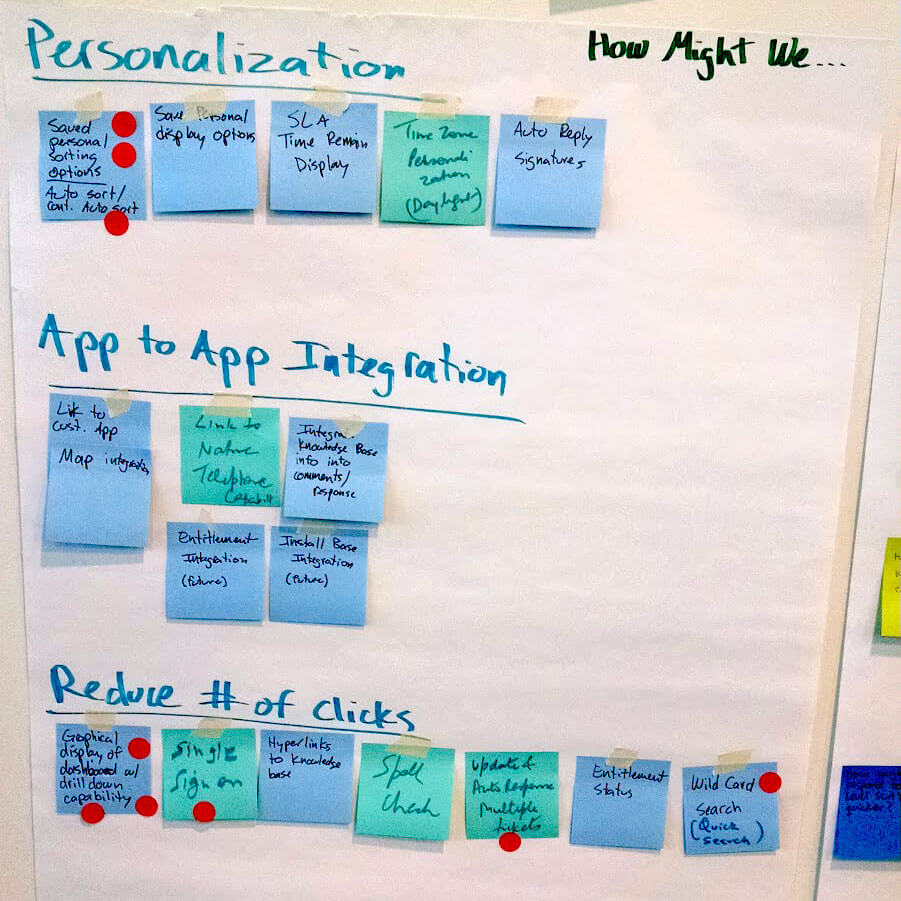 Personalization
How Might We...
Saved
personal
sorting
options
Auto sort/
cont. Auto sort
Save Personal
display options
SLA
Time Remain
Display
Time Zone
Personali
zation
(Daylight)
Auto Reply
Signatures
App to App Integration
Lik to
cust. App
Map integration
Link to
Native
Telephone
Capabilt
Integra
Knowledge Base
info into
comments/
response
Entitlement
Integration
(future)
Install Base
Integration
(future)
Reduce # of clicks
Graphical
display of
dashboard w/
drill down
capability
Single
Sign on
Hyperlinks
to Knowledge
base
Spell
Check
Update &
Auto Response
Multiple
tickets
Entitlement
Status
Wild Card
Search
(Quick
search)
quicker?